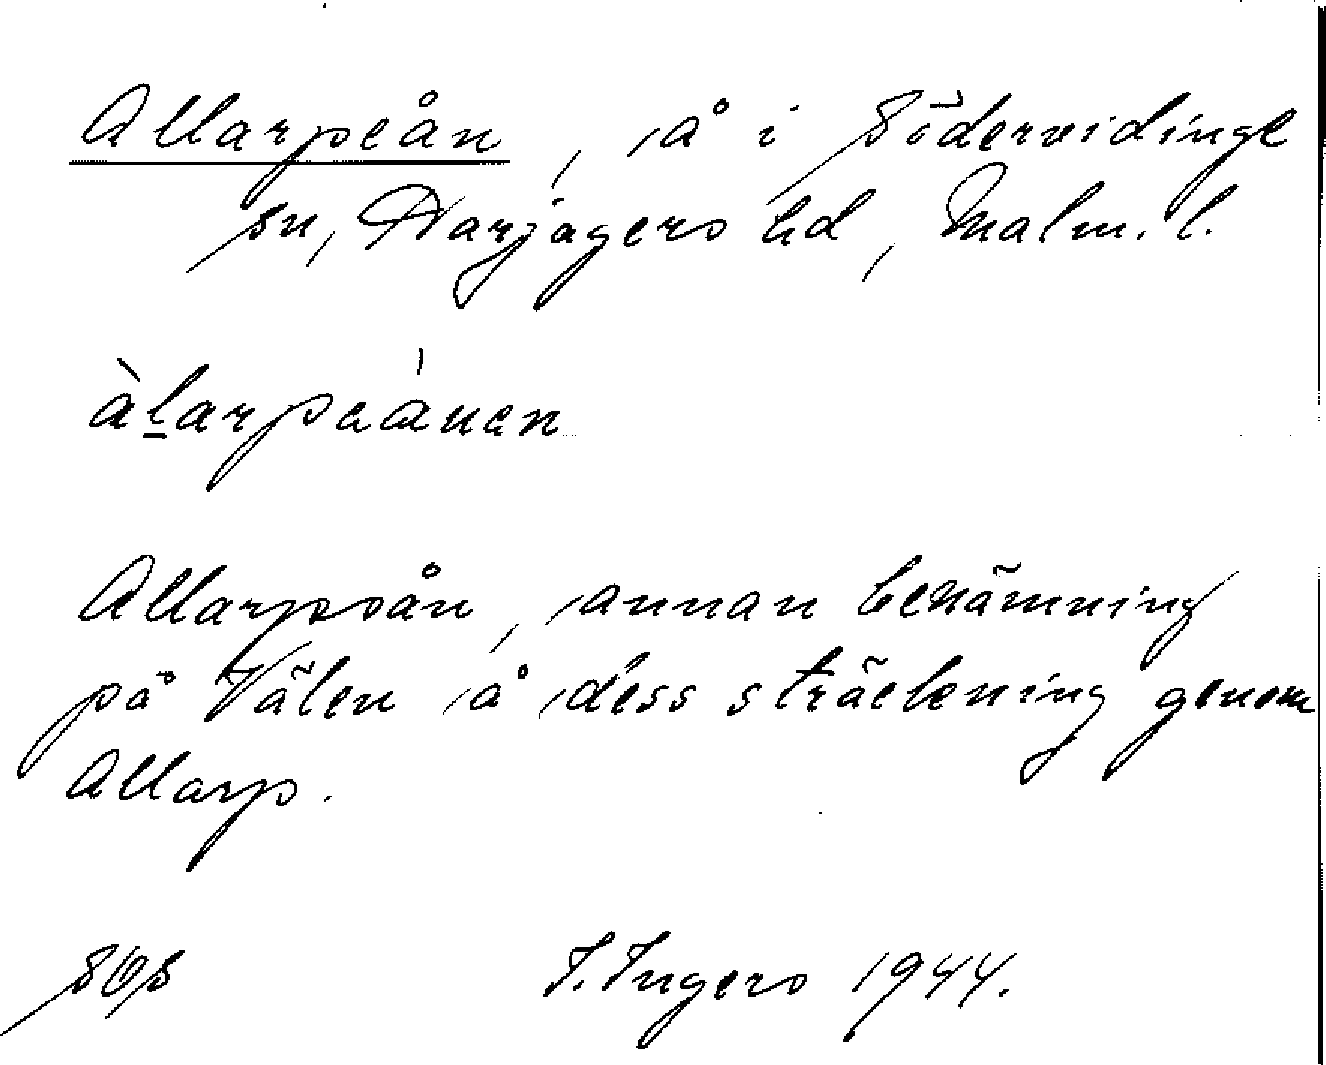 Allarpeån, å i Södervidinge
sn, Harjagers hd, Malm. l.
àlarpeánen
Allarpsån, annan benämning
på Välen å dess sträckning genom
Allarp.
SOS I. Ingers 1944.